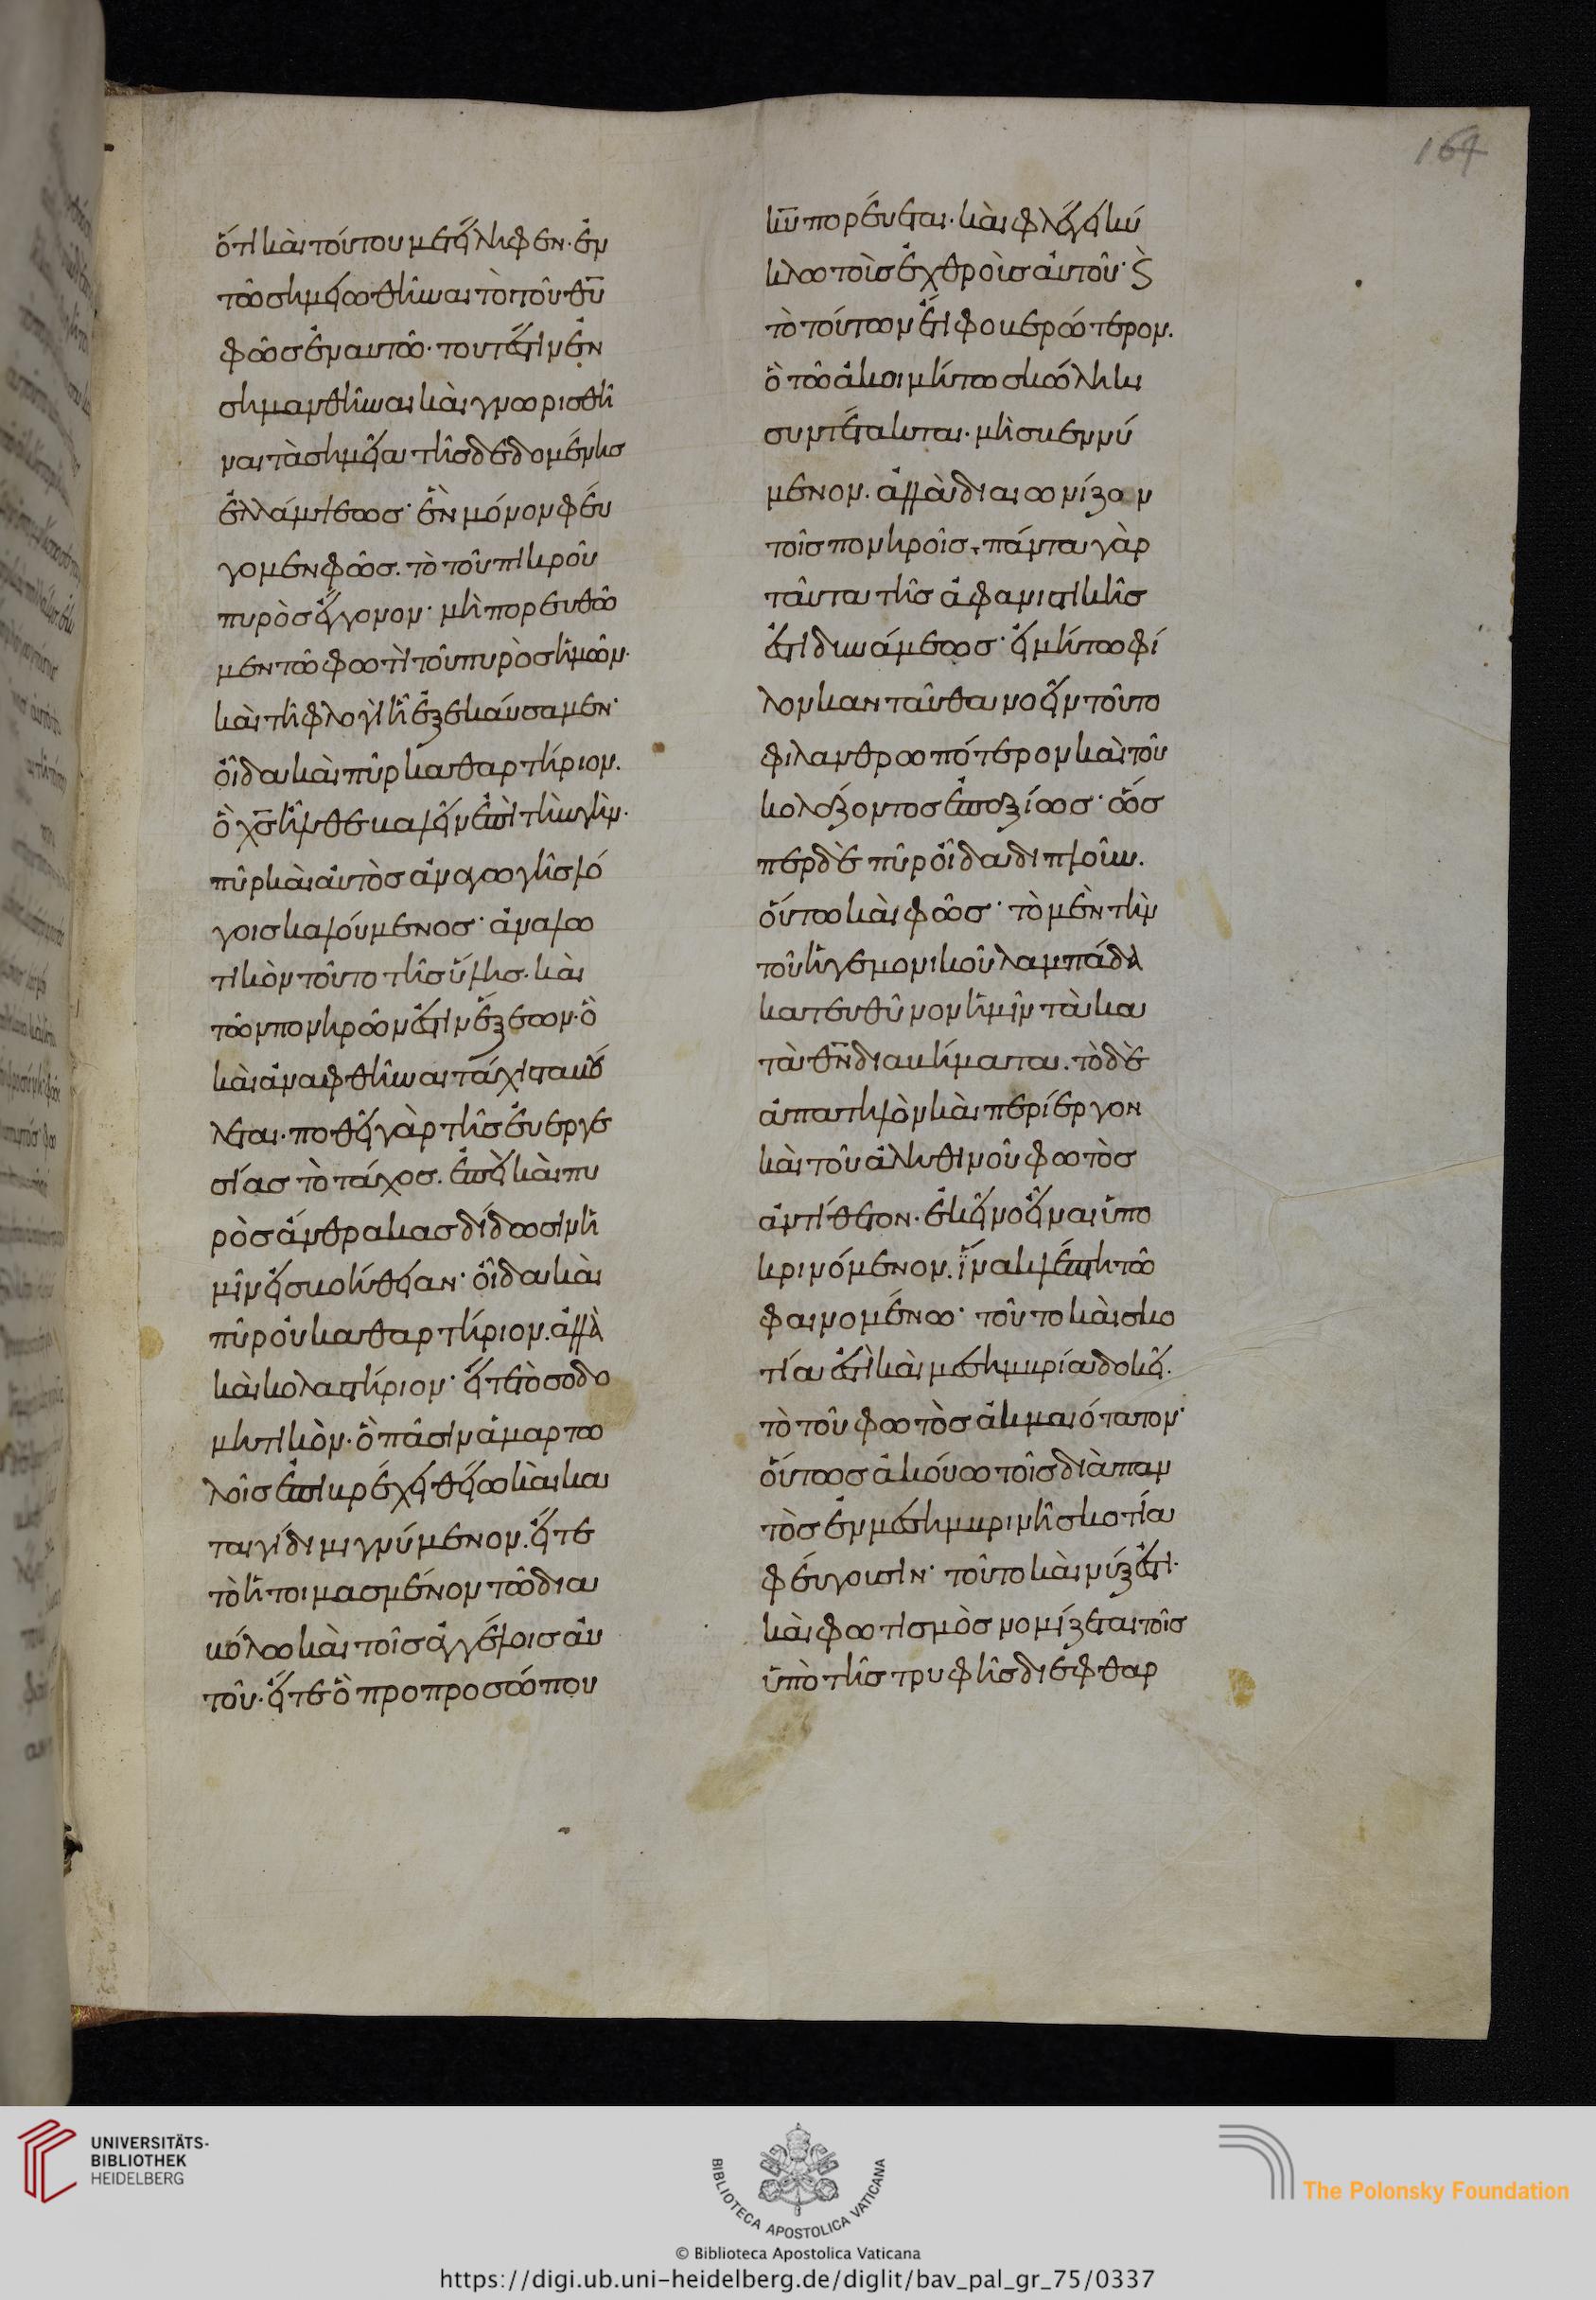 ὅτι καὶ τούτου μετείληφεν· ἐν
τῶ σημειωθῆναι τὸ τοῦ θ̅υ̅
φῶς ἐν αυτῶ· τουτέστιν ἐν
σημανθῆναι καὶ γνωρισθῆ
ναι τὰ σημεῖα τῆς δεδομένης
ἐλλάμψεως· ἓν μόνον φεύ
γομεν φῶς. τὸ τοῦ πικροῦ
πυρὸς ἔγγονον· μὴ πορευθῶ
μεν τῶ φωτὶ τοῦ πυρὸς ἡμῶν·
καὶ τῆ φλογὶ ἧ ἐξεκαύσαμεν·
οἶδα καὶ πῦρ καθαρτήριον.
ὃ χ̅ς̅ ἦλθε βαλεῖν ἐπὶ τὴν γῆν·
πῦρ καὶ αὐτὸς ἀναγωγῆς λό
γοις καλούμενος· ἀναλω
τικὸν τοῦτο τῆς ὕλης· καὶ
τῶν πονηρῶν ἐστὶν ἕξεων· ὃ
καὶ ἀναφθῆναι τάχιστα βού
λεται· ποθεῖ γὰρ τῆς εὐεργε
σίας τὸ τάχος. ἐπεὶ καὶ πυ
ρὸς ἄνθρακας δίδωσιν ἡ
μῖν εἰς βοήθειαν· οἶδα καὶ
πῦρ οὐ καθαρτήριον. ἀλλὰ
καὶ κολαστήριον· εἴτε τὸ σοδο
μητικὸν· ὃ πᾶσιν ἁμαρτω
λοῖς ἐπιβρέχει θείω καὶ κα
ταιγίδι μιγνύμενον. εἴτε
τὸ ἡτοιμασμένον τῶ δια
βόλω καὶ τοῖς ἀγγέλοις αὐ
τοῦ· εἴτε ὃ προ προσώπου
κ̅υ̅ πορεύεται· καὶ φλέγει κύ
κλω τοὺς ἐχθροὺς αὐτοῦ· ϗ̀
τὸ τούτων ἔτι φοβερώτερον.
ὃ τῶ ἀκοιμήτω σκώληκι
συντέτακται· μὴ σβεννύ
μενον. ἀλλὰ διαιωνίζον
τοῖς πονηροῖς. πάντα γὰρ
ταῦτα τῆς ἀφανιστικῆς
ἐστὶ δυνάμεως· εἰ μή τω φί
λον κανταῦθα νοεῖν τοῦτο
φιλανθρωπότερον καὶ τοῦ
κολάζοντος ἐπαξίως· ὥσ
περ δὲ πῦρ οἶδα διπλοῦν.
οὕτω καὶ φῶς· τὸ μὲν τὴν
τοῦ ἡγεμονικοῦ λαμπάδα
κατευθῦνον ἡμῖν τὰ κα
τὰ θ̅ν̅ διαβήματα. τὸ δὲ
ἀπατηλὸν καὶ περίεργον
καὶ τοῦ ἀληθινοῦ φωτὸς
ἀντίθετον· ἐκεῖνο εἶναι ὑπο
κρινόμενον. ἵνα κλέπτη τῶ
φαινομένω· τοῦτο καὶ σκο
τία ἐστὶ καὶ μεσημβρία δοκεῖ.
τὸ τοῦ φωτὸς ἀκμαιότατον·
οὕτως ἀκούω τοῖς διὰ παν
τὸς ἐν μεσημβρινῆ σκοτία
φεύγουσιν· τοῦτο καὶ νύξ ἐστι·
καὶ φωτισμὸς νομίζεται τοῖς
ὑπὸ τῆς τρυφῆς διεφθαρ
164
UNIVERSITÄTS-
BIBLIOTHEK
HEIDELBERG
BIBLIOTECA APOSTOLICA VATICANA
The Polonsky Foundation
© Biblioteca Apostolica Vaticana
https://digi.ub.uni-heidelberg.de/diglit/bav_pal_gr_75/0337